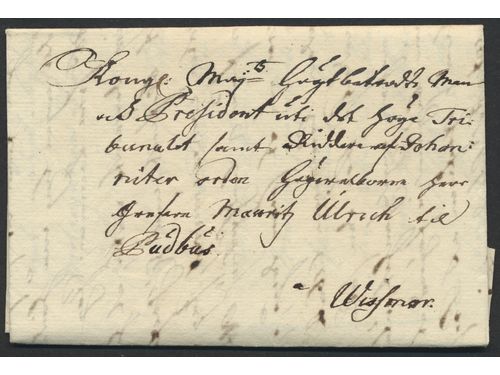 Kongl: Maij:ts Högtbetrodde Man
och President uti det Höga Tri-
bunalet samt Riddare af Johan:
niter orden Högvälborne Herr
Grefve Mauritz Ulrich til
Pudbus.
a Wissmar.